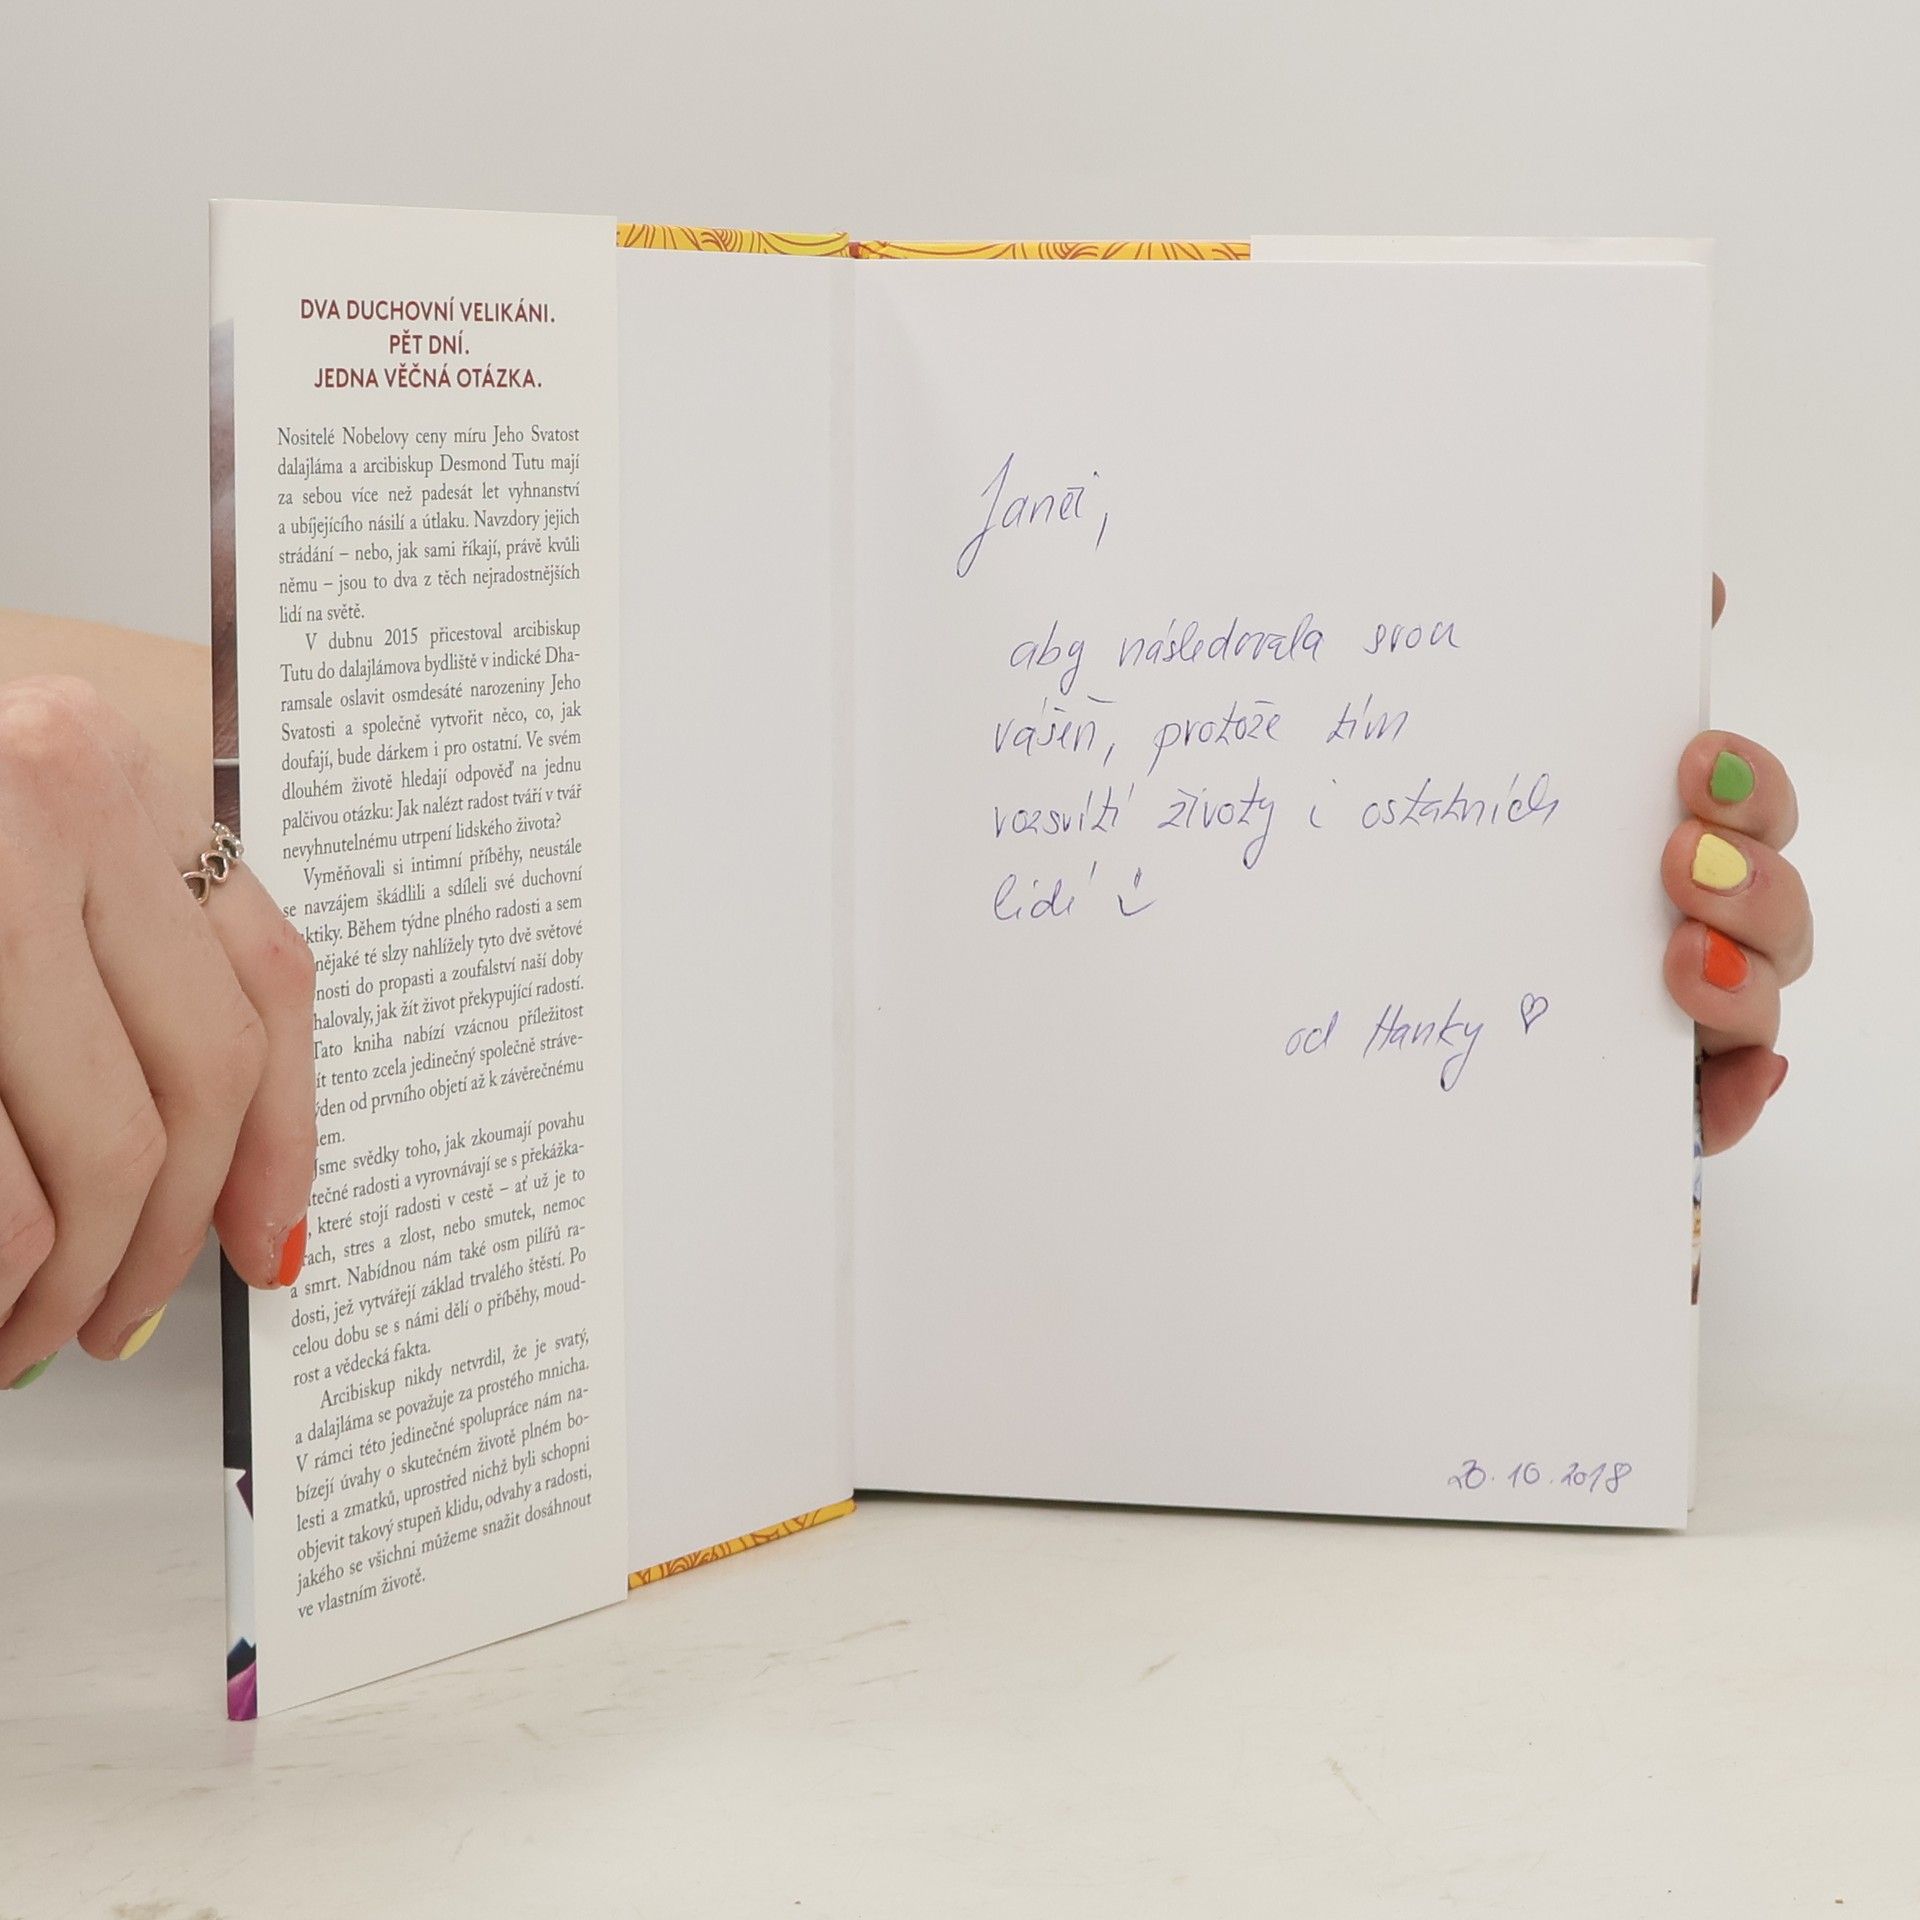 DVA DUCHOVNÍ VELIKÁNI.
PĚT DNÍ.
JEDNA VĚČNÁ OTÁZKA.
Nositelé Nobelovy ceny míru Jeho Svatost
dalajláma a arcibiskup Desmond Tutu mají
za sebou více než padesát let vyhnanství
a ubíjejícího násilí a útlaku. Navzdory jejich
strádání – nebo, jak sami říkají, právě kvůli
němu – jsou to dva z těch nejradostnějších
lidí na světě.
V dubnu 2015 přicestoval arcibiskup
Tutu do dalajlámova bydliště v indické Dha-
ramsale oslavit osmdesáté narozeniny Jeho
Svatosti a společně vytvořit něco, co, jak
doufají, bude dárkem i pro ostatní. Ve svém
dlouhém životě hledají odpověď na jednu
palčivou otázku: Jak nalézt radost tváří v tvář
nevyhnutelnému utrpení lidského života?
Vyměňovali si intimní příběhy, neustále
se navzájem škádlili a sdíleli své duchovní
ktiky. Během týdne plného radosti a sem
nějaké té slzy nahlížely tyto dvě světové
nosti do propasti a zoufalství naší doby
halovaly, jak žít život překypující radostí.
Tato kniha nabízí vzácnou příležitost
ít tento zcela jedinečný společně stráve-
ýden od prvního objetí až k závěrečnému
em.
Jsme svědky toho, jak zkoumají povahu
tečné radosti a vyrovnávají se s překážka-
, které stojí radosti v cestě – ať už je to
rach, stres a zlost, nebo smutek, nemoc
a smrt. Nabídnou nám také osm pilířů ra-
dosti, jež vytvářejí základ trvalého štěstí. Po
celou dobu se s námi dělí o příběhy, moud-
rost a vědecká fakta.
Arcibiskup nikdy netvrdil, že je svatý,
a dalajláma se považuje za prostého mnicha.
V rámci této jedinečné spolupráce nám na-
bízejí úvahy o skutečném životě plném bo-
lesti a zmatků, uprostřed nichž byli schopni
objevit takový stupeň klidu, odvahy a radosti,
jakého se všichni můžeme snažit dosáhnout
ve vlastním životě.
Janči,
aby následovala svou
vášeň, protože tím
rozsvítí životy i ostatních
lidí
od Hanky ♡
20.10.2018